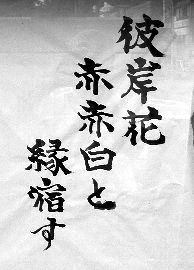 彼岸花
赤赤白と
縁宿す